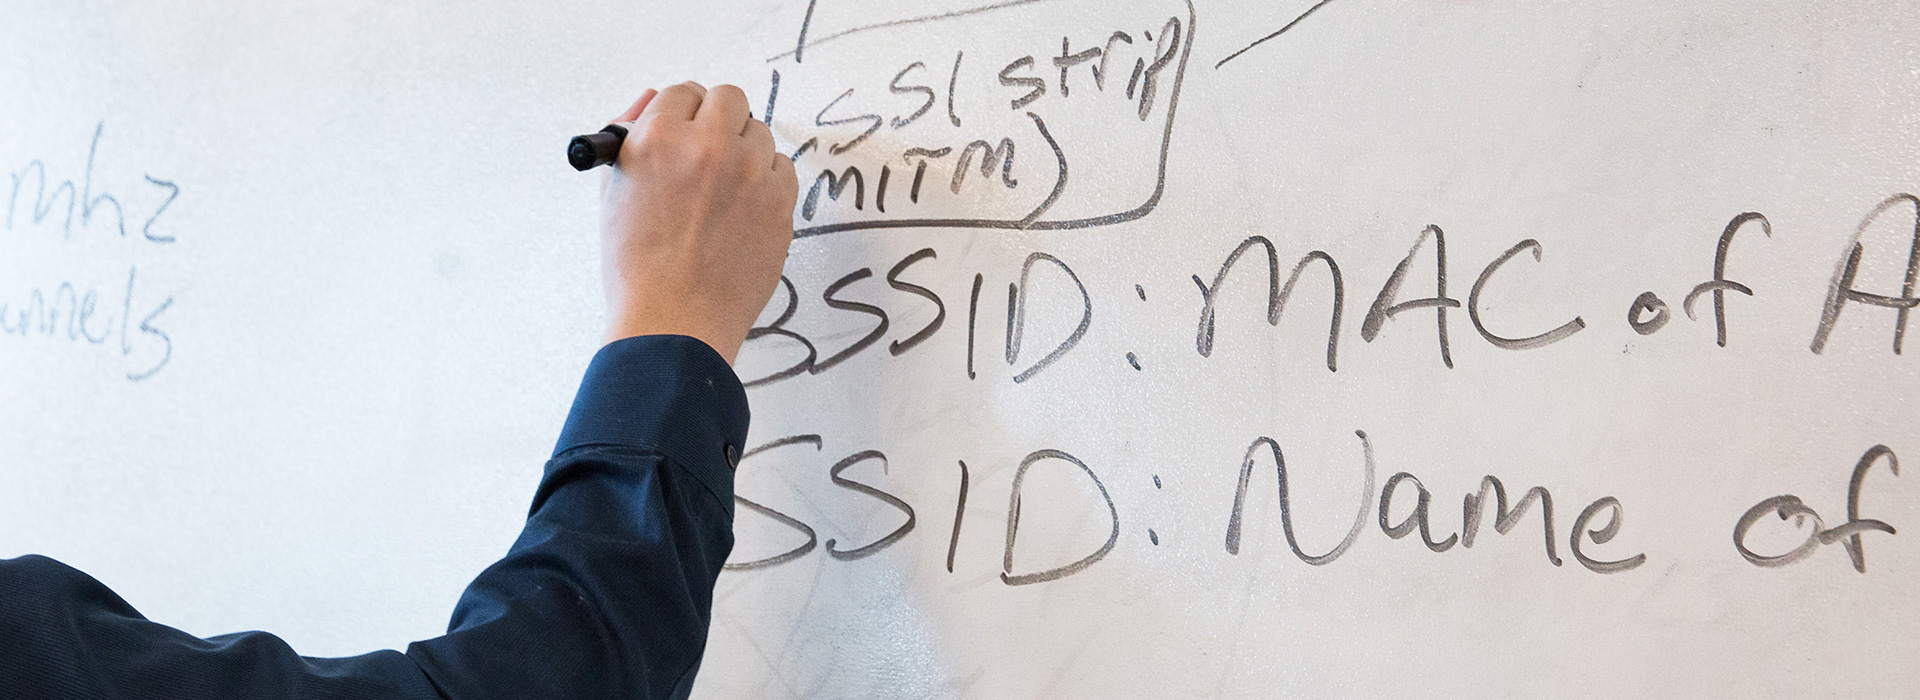 mhz
ssl strip
(MITM)
BSSID: MAC of A
SSID: Name of